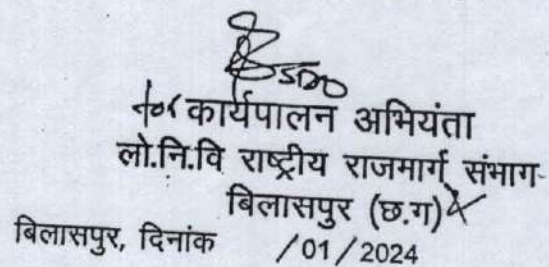 SDO
for कार्यपालन अभियंता
लो.नि.वि राष्ट्रीय राजमार्ग संभाग
बिलासपुर (छ.ग)
बिलासपुर, दिनांक /01/2024